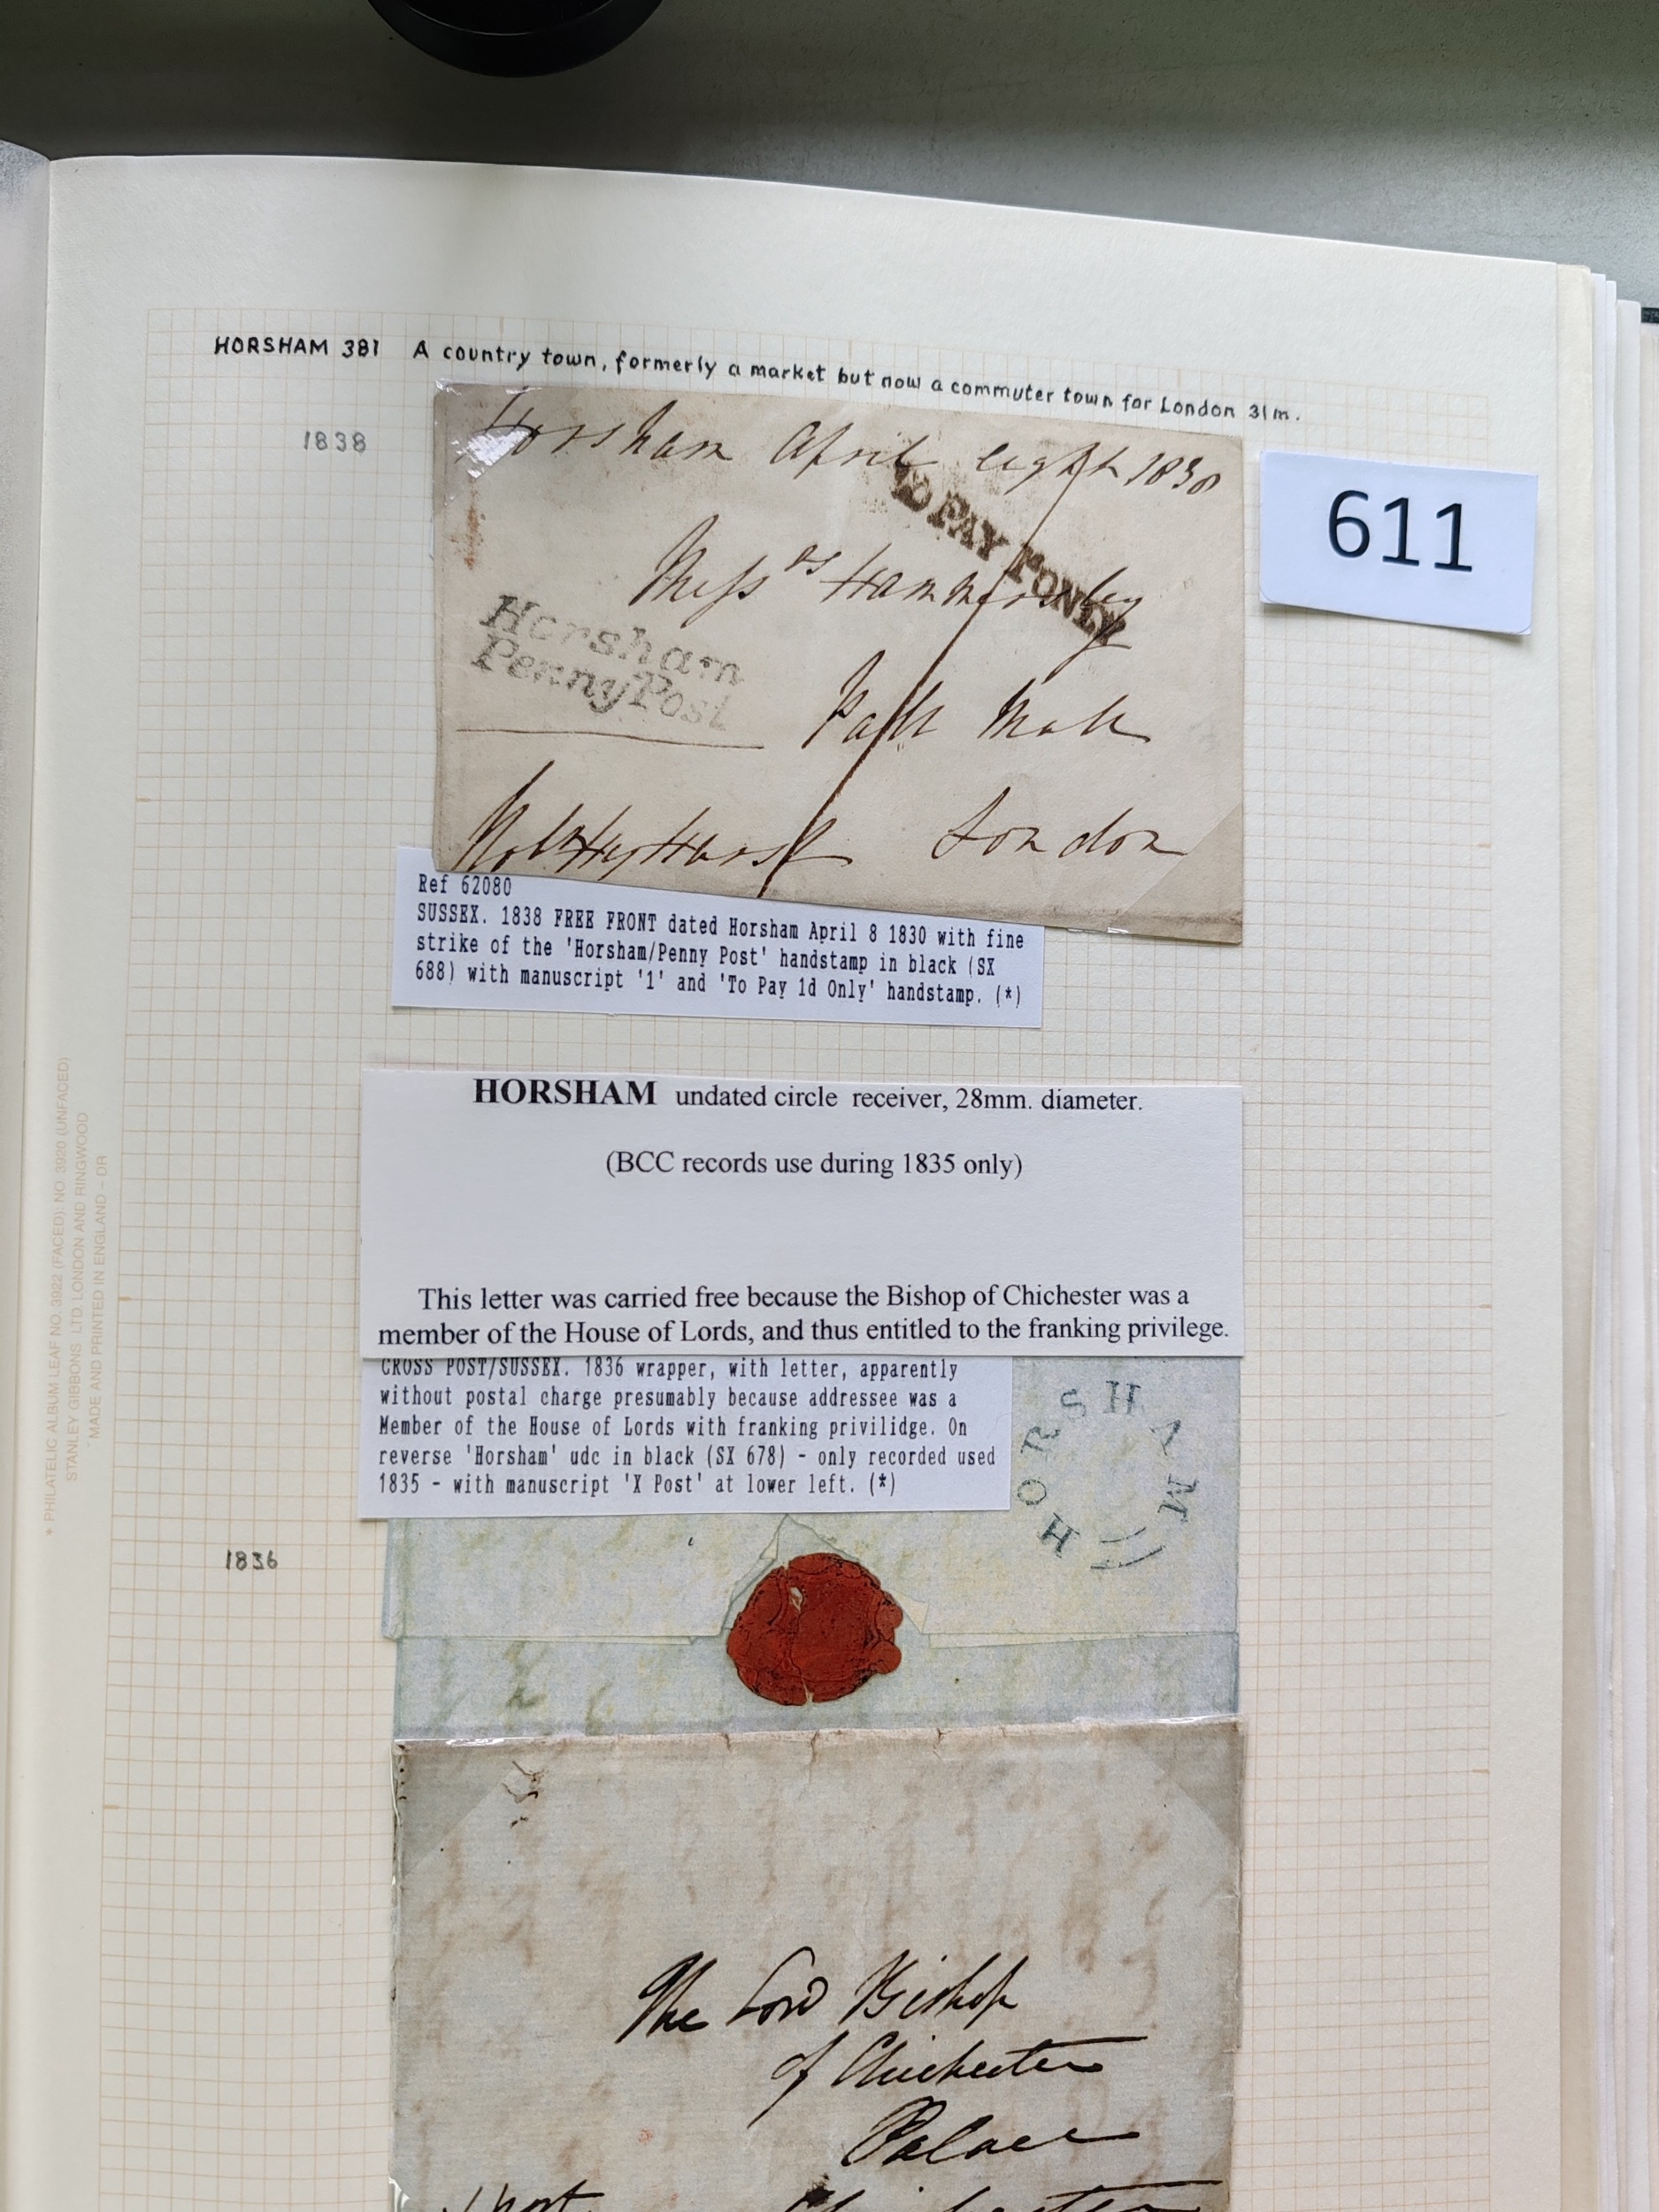 HORSHAM 381 A country town, formerly a market but now a commuter town for London 31m.
1838
Horsham April eight 1838
TO PAY 1D ONLY
611
Messrs Hammersley
Horsham
Penny Post
Pall Mall
London
Ref 62080
SUSSEX. 1838 FREE FRONT dated Horsham April 8 1830 with fine
strike of the 'Horsham/Penny Post' handstamp in black (SX
688) with manuscript '1' and 'To Pay 1d Only' handstamp. (*)
HORSHAM undated circle receiver, 28mm. diameter.
(BCC records use during 1835 only)
This letter was carried free because the Bishop of Chichester was a
member of the House of Lords, and thus entitled to the franking privilege.
CROSS POST/SUSSEX. 1836 wrapper, with letter, apparently
without postal charge presumably because addressee was a
Member of the House of Lords with franking privilidge. On
reverse 'Horsham' udc in black (SX 678) - only recorded used
1835 - with manuscript 'X Post' at lower left. (*)
HORSHAM
1836
The Lord Bishop
of Chichester
Palace
* PHILATELIC ALBUM LEAF NO. 3922 (FACED): NO. 3920 (UNFACED)
STANLEY GIBBONS LTD. LONDON AND RINGWOOD
MADE AND PRINTED IN ENGLAND - DR